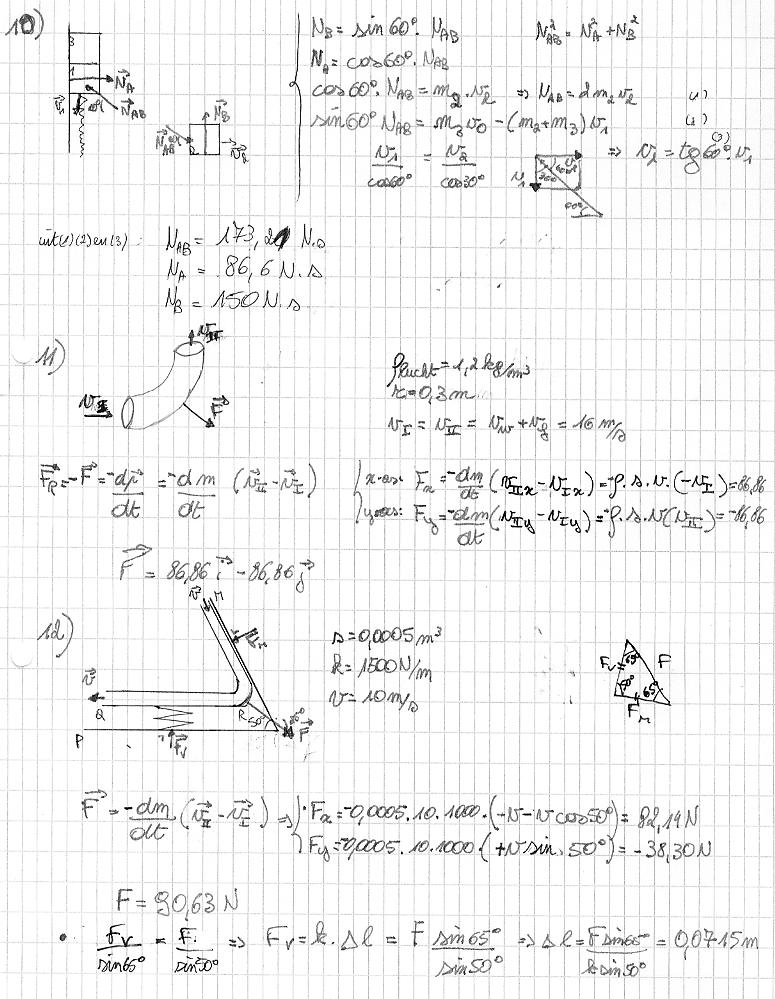 10)
N_B = sin60°. N_AB N²_AB = N²_A + N²_B
N_A = cos60°. N_AB
cos60°. N_AB = m_2 . v_2 ⇒ N_AB = 2 m_2 v_2 (1)
sin60° N_AB = m_3 v_0 - (m_2+m_3) v_1 (2)
v_1/cos60° = v_2/cos30° ⇒ v_2 = tg60°. v_1 (3)
3
1
N_A
N_AB
v_1
N_B
N_AB
v_2
v_1
60°
(1)(2) en (3) :
N_AB = 173,2 N.s
N_A = 86,6 N.s
N_B = 150 N.s
11)
v_II
v_I
F
ρ_lucht = 1,2 kg/m³
r = 0,3 m
v_I = v_II = v_w + v_g = 16 m/s
F_R = -F = -dp/dt = -dm/dt (v_II - v_I)
x-as: F_x = -dm/dt (v_IIx - v_Ix) = -ρ. s. v. (-v_I) = 86,86
y-as: F_y = -dm/dt (v_IIy - v_Iy) = -ρ. s. v (v_II) = -86,86
F = 86,86 i - 86,86 j
12)
s = 0,0005 m³
k = 1500 N/m
v = 10 m/s
v
M
v
Q
R
50°
F
P
F_v
F_v
65°
F
50°
65°
F_M
F = -dm/dt (v_II - v_I) ⇒ F_x = -0,0005. 10. 1000. (-v - v cos50°) = 82,14 N
F_y = -0,0005. 10. 1000. (+v sin. 50°) = -38,30 N
F = 90,63 N
• F_v/sin65° = F/sin50° ⇒ F_v = k. Δl = F sin65°/sin50° ⇒ Δl = F sin65°/k sin50° = 0,0715 m